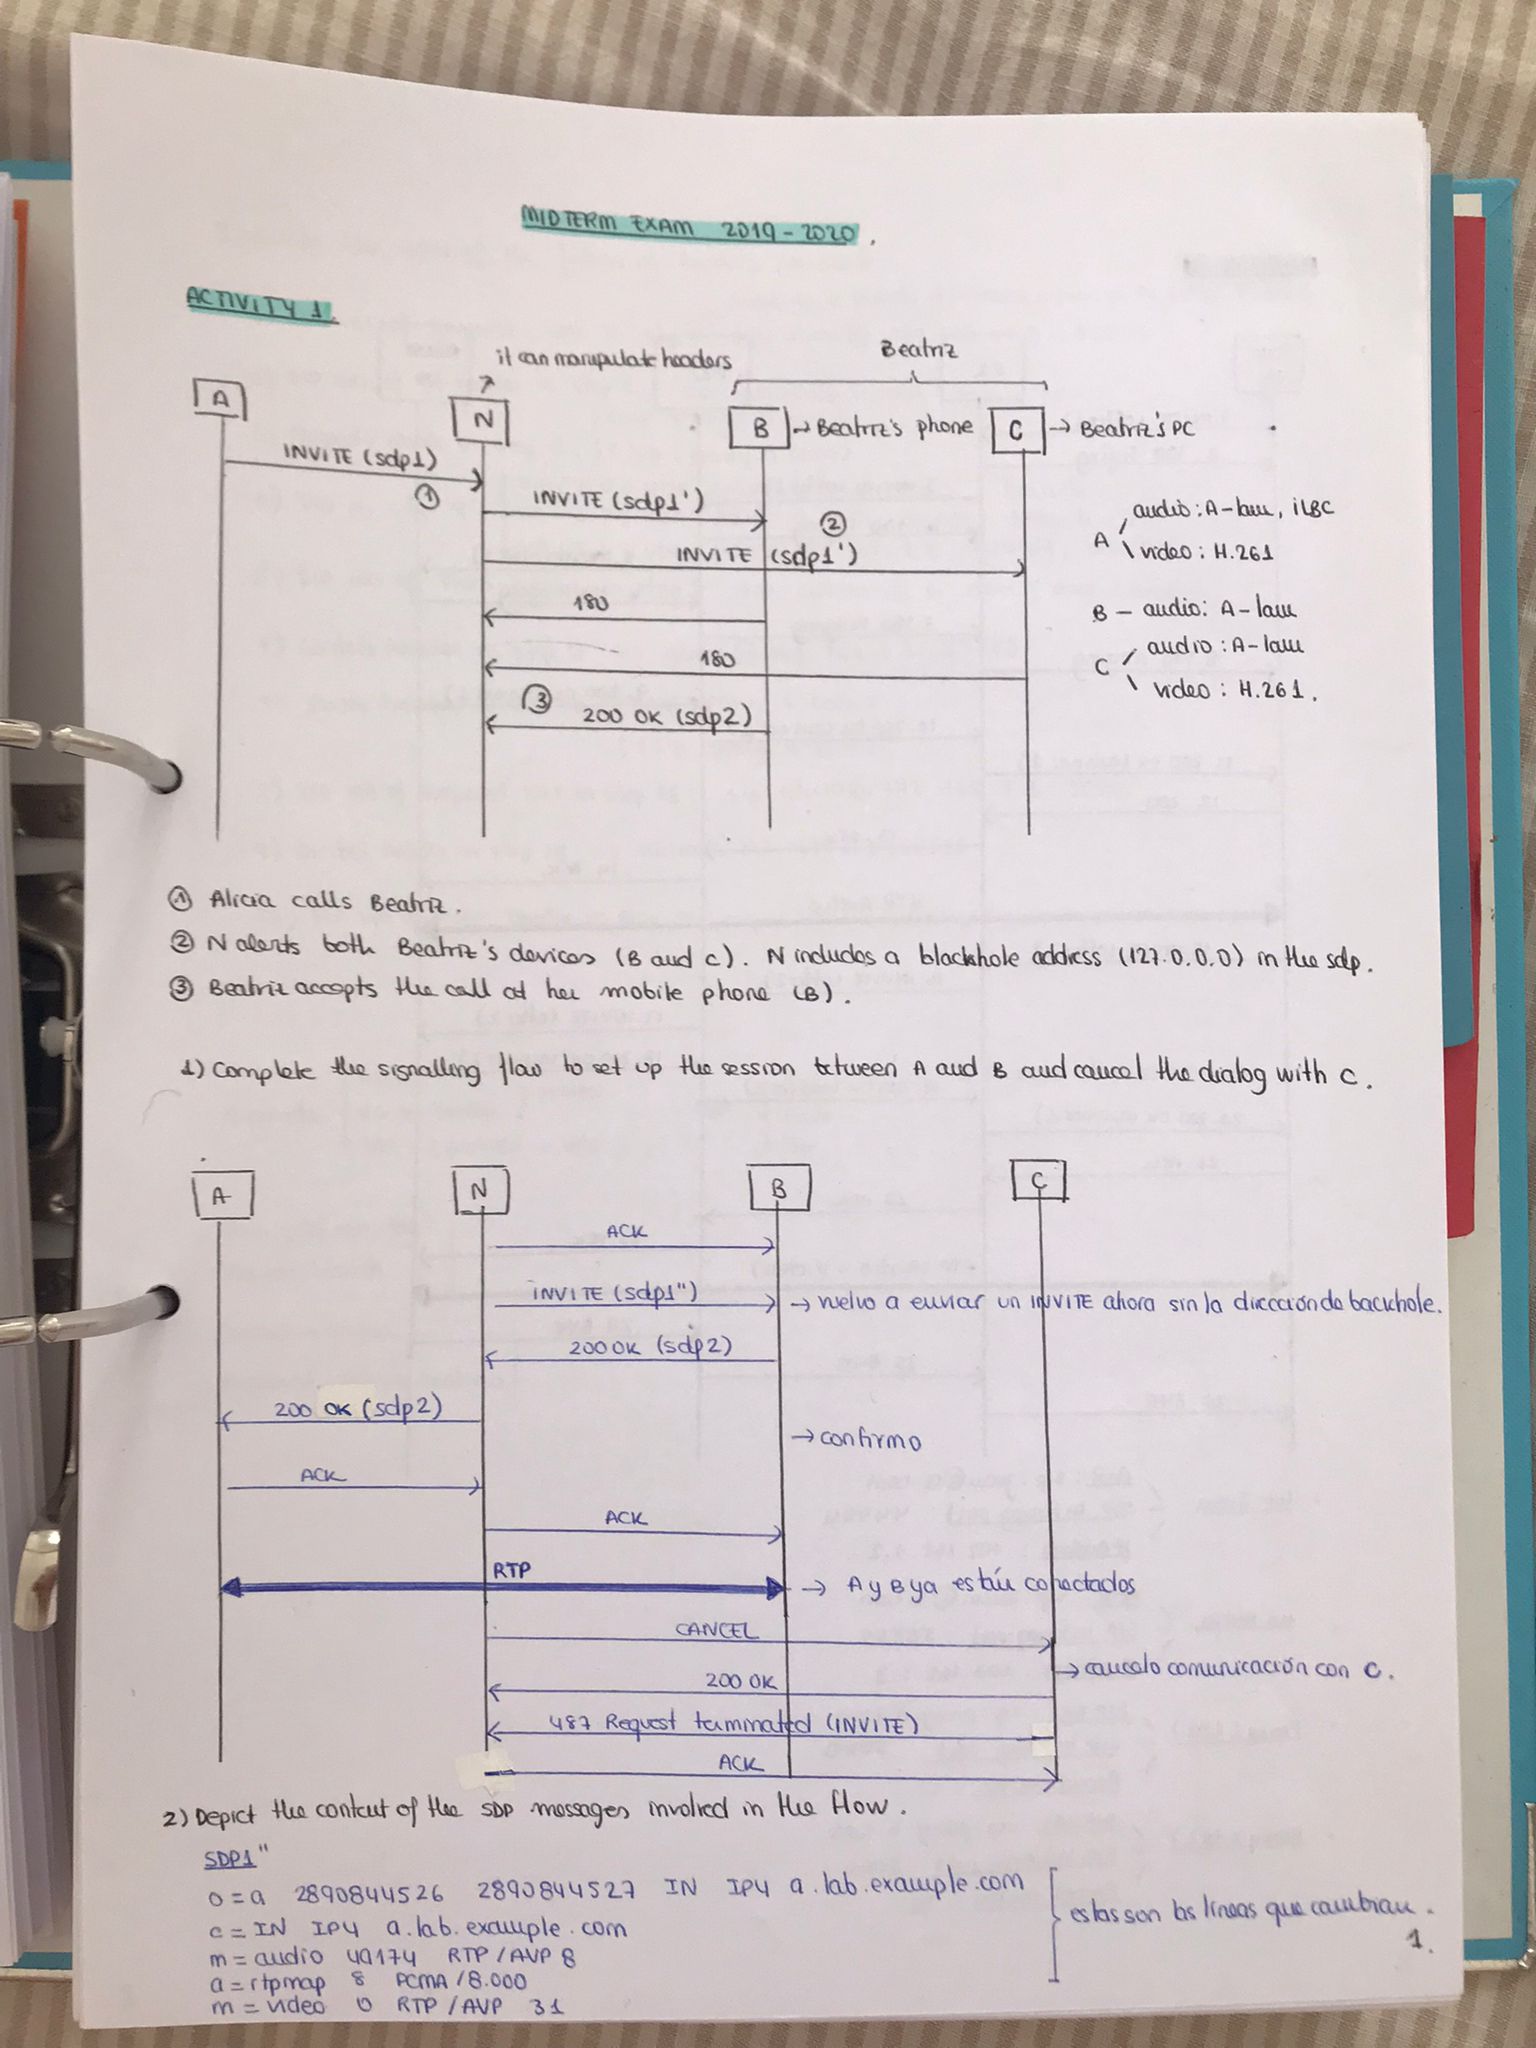 MIDTERM EXAM 2019-2020.
ACTIVITY 1.
it can manipulate headers
Beatriz
A
N
B → Beatriz's phone
C → Beatriz's PC
INVITE (sdp1)
①
INVITE (sdp1')
②
INVITE (sdp1')
180
180
③
200 OK (sdp2)
A audio: A-law, iLBC
video: H.261
B - audio: A-law
C audio: A-law
video: H.261.
① Alicia calls Beatriz.
② N alerts both Beatriz's devices (B and C). N includes a blackhole address (127.0.0.0) in the sdp.
③ Beatriz accepts the call at her mobile phone (B).
1) Complete the signalling flow to set up the session between A and B and cancel the dialog with C.
A
N
B
C
ACK
INVITE (sdp1'') → vuelvo a enviar un INVITE ahora sin la dirección de backhole.
200 OK (sdp2)
200 OK (sdp2)
→ confirmo
ACK
ACK
RTP → A y B ya están conectados
CANCEL
→ cancelo comunicación con C.
200 OK
487 Request terminated (INVITE)
ACK
2) Depict the content of the SDP messages involved in the flow.
SDP1''
o = a 2890844526 2890844527 IN IP4 a.lab.example.com
c = IN IP4 a.lab.example.com
estas son las líneas que cambian.
m = audio 49174 RTP/AVP 8
a = rtpmap 8 PCMA/8.000
m = video 0 RTP/AVP 31
1.